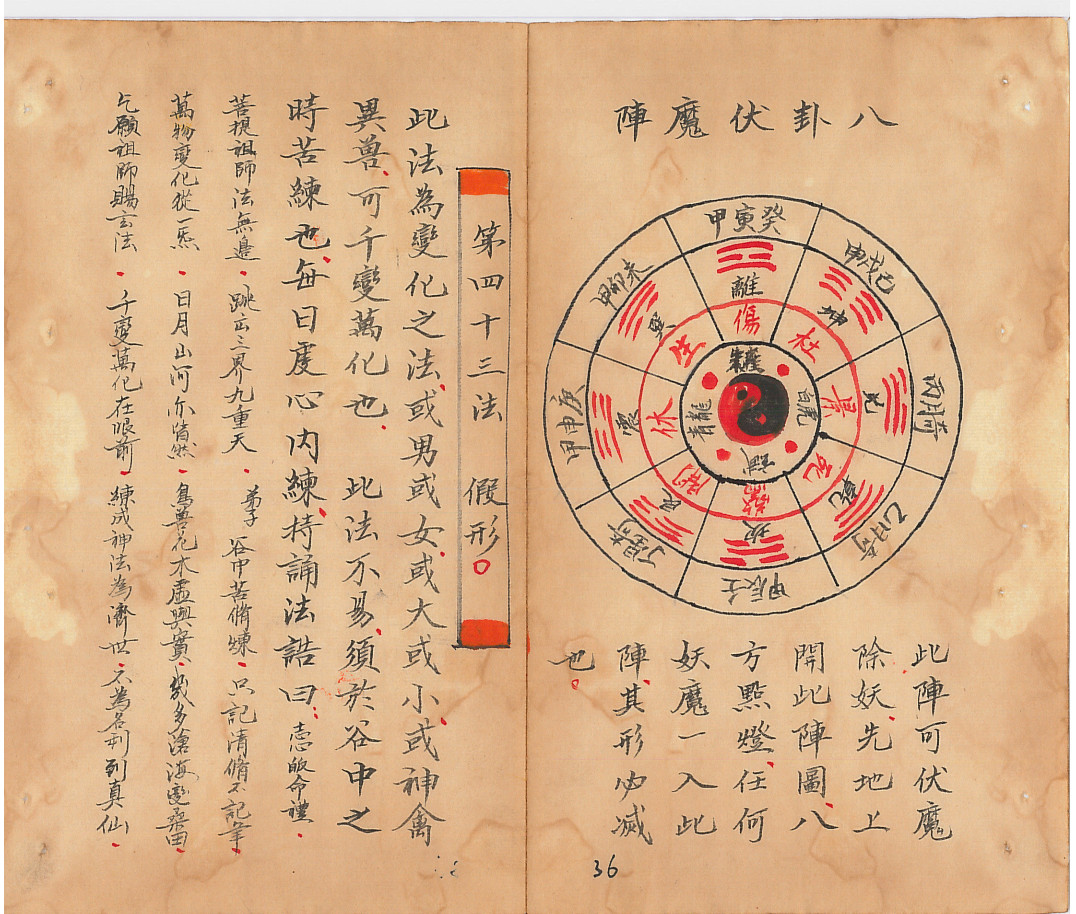 八卦伏魔陣
甲寅癸
離
傷
申戌己
坤
杜
兌
死
乾
甲辰壬
坎
甲申庚
震
休
甲卯未
生
開
青龍
此陣可伏魔
除妖先地上
開此陣圖八
方點燈任何
妖魔一入此
陣其形必滅
也。
36
第四十三法 假形○
此法為變化之法、或男或女、或大或小、或神禽
異兽、可千變萬化也、此法不易、須於谷中之
時苦練也、每日虔心內練、持誦法誥曰、志皈命禮、
菩提祖師法無邊、跳出三界九重天、弟子谷中苦脩煉、只記清脩不記筆、
萬物變化從一炁、日月山河亦皆然、鳥兽花木虛與實、幾多滄海變桑田、
乞願祖師賜玄法、千變萬化在眼前、練成神法為濟世、不為名利列真仙、